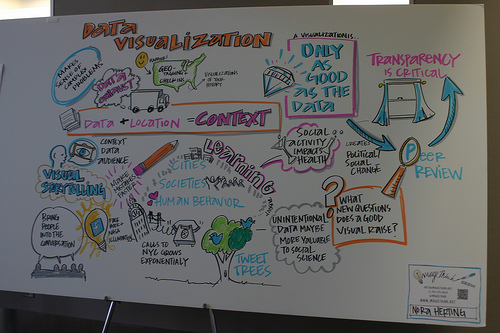 DATA
VISUALIZATION
MAKES
SENSE OF
COMPLEX
PROBLEMS
DATA
GEO-
TAGGING
CHECKINS
VISUALIZATIONS
A VISUALIZATION IS
ONLY
AS
GOOD
AS THE
DATA
TRANSPARENCY
IS CRITICAL
DATA + LOCATION = CONTEXT
CONTEXT
DATA
AUDIENCE
VISUAL
STORYTELLING
Learning
CITIES
SOCIETIES
HUMAN BEHAVIOR
SOCIAL
ACTIVITY
IMPACTS
HEALTH
CREATES
POLITICAL/
SOCIAL
CHANGE
PEER
REVIEW
WHAT
NEW QUESTIONS
DOES A GOOD
VISUAL RAISE?
BRING
PEOPLE
INTO THE
CONVERSATION
CALLS TO
NYC GROWS
EXPONENTIALLY
TWEET
TREES
UNINTENTIONAL
DATA MAY BE
MORE VALUABLE
TO SOCIAL
SCIENCE
NORA HERTING